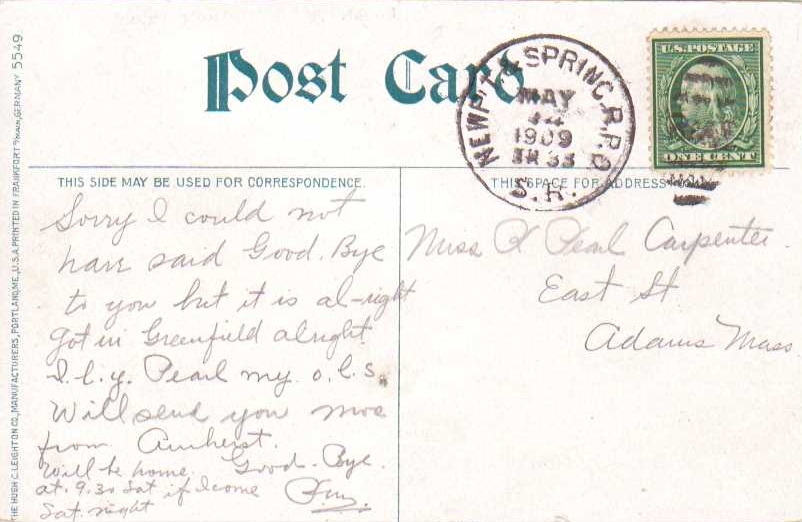 Post Card
NEWP. & SPRING. R.P.O.
MAY
1909
S.R.
U.S. POSTAGE
ONE CENT
THIS SIDE MAY BE USED FOR CORRESPONDENCE.
THIS SPACE FOR ADDRESS
Sorry I could not
have said Good. Bye
to you but it is al-right
got in Greenfield alright.
I.l.y. Pearl my o.l.s.
Will send you more
from Amherst.
Will be home. Good-Bye.
at. 9.30 Sat if I come
Sat. night
Miss Pearl Carpenter.
East St
Adams Mass
THE HUGH C. LEIGHTON CO., MANUFACTURERS, PORTLAND, ME., U.S.A. PRINTED IN FRANKFORT o/MAIN, GERMANY 5549